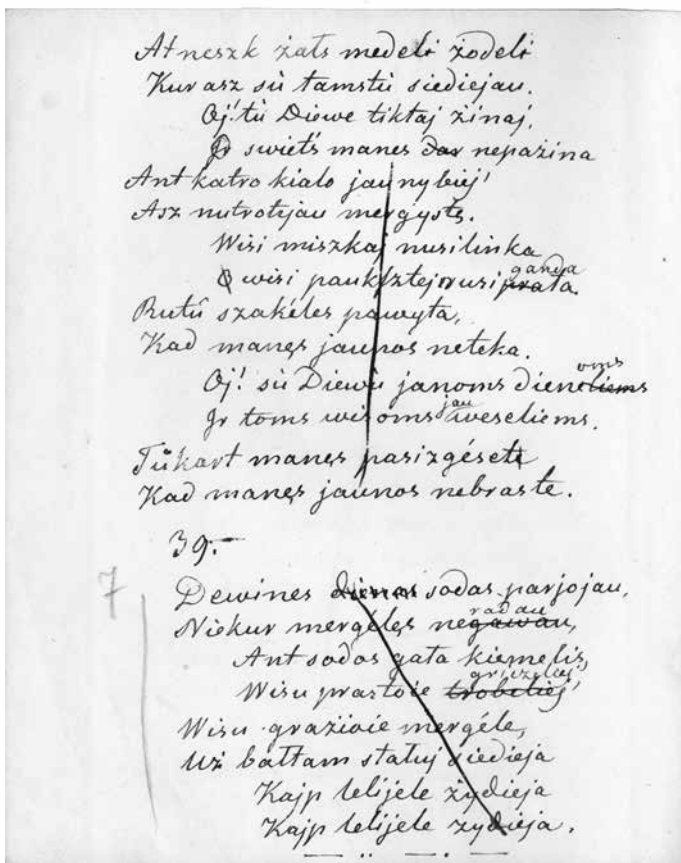 Atneszk żals medeli żodeli
Kur asz sù tamstù siediejau.
Oj! tù Diewe tiktaj żinaj,
Jr swiets manes dar nepażina
Ant katro kialo jaunybiej!
Asz nutrotijau mergystę.
Wisi miszkaj nusilinka
ganda
O wisi pauksztej nusiprata.
Rutû szakéles pawyta,
Kad manęs jaunos neteka.
oms
Oj! sù Diewù janoms dieneliems
jau
Jr toms wisoms weseliems.
Tûkart manęs pasizgésete
Kad manęs jaunos nebraste.
39.
7
Dewines dienas sodas parjojau,
radau
Niekur mergélęs negawau,
Ant sodos gala kiemelis,
griczelej
Wisu prastoie trobeliej!
Wisu grażioie mergéle,
Uż baltam staluj siedieja
Kajp lelijele żydieja
Kajp lelijele zydieja.